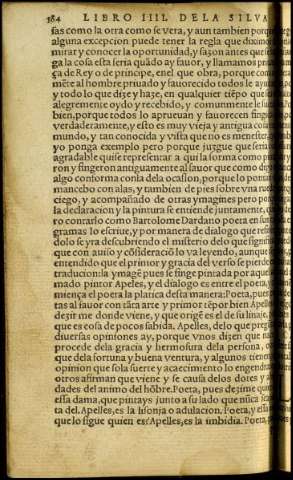 384 LIBRO IIII. DELA SILVA
sas como la otra como se vera, y aun tambien porque
alguna excepcion puede tener la regla que diximos
mirar y conocer la oportunidad, y sazon antes que
ga la cosa esta seria quãdo ay fauor, y llamamos
ça de Rey o de principe, en el que obra, porque
mẽte al hombre priuado y fauorecido todos le
y todo lo que dize y haze, en qualquier tiẽpo que
alegremente oydo y recebido, y comunmente le
bien, porque todos lo aprueuan y fauorecen
verdaderamente, y esto es muy vieja y antigua
mundo, y tan conocida y vista que no es menester
yo ponga exemplo pero porque juzgue que
agradable quise representar a qui la forma como
ron y fingeron antiguamente al fauor que como
algo conforma con la dela ocasion, porque lo
mancebo con alas, y tambien de pies sobre vna
ciego, y acompañado de otras ymagines pero
la declaracion y la pintura se entiende juntamente,
ro contarlo como Bartolome Dardano poeta en sus
gramas lo escriue, y por manera de dialogo que
dolo se yra descubriendo el misterio delo que
que con auiso y cõsideraciõ lo va leyendo, aunque
entendido que el primor y gracia del verso se
traducion: la ymagẽ pues se finge pintada por
mado pintor Apeles, y el dialogo es entre el poeta,
miença el poeta la platica desta manera: Poeta, pues
tas al fauor con tãca arte y primor tẽ por bien Apelles
dezir me donde viene, y que origẽ es el de su linaje,
que es cosa de pocos sabida. Apelles, delo que
diuersas opiniones ay, porque vnos dizen que
procede dela gracia y hermosura dela persona,
que dela fortuna y buena ventura, y algunos tienen
opinion que sola suerte y acaecimiento lo engendra
otros afirman que viene y se causa delos dotes y
dades del animo del hõbre. Poeta, pues dezime
essa dama, que pintays junto a su lado que nũca
ta del. Apelles, es la lisonja o adulacion. Poeta, y
que lo sigue quien es? Apelles, es la imbidia. Poeta,